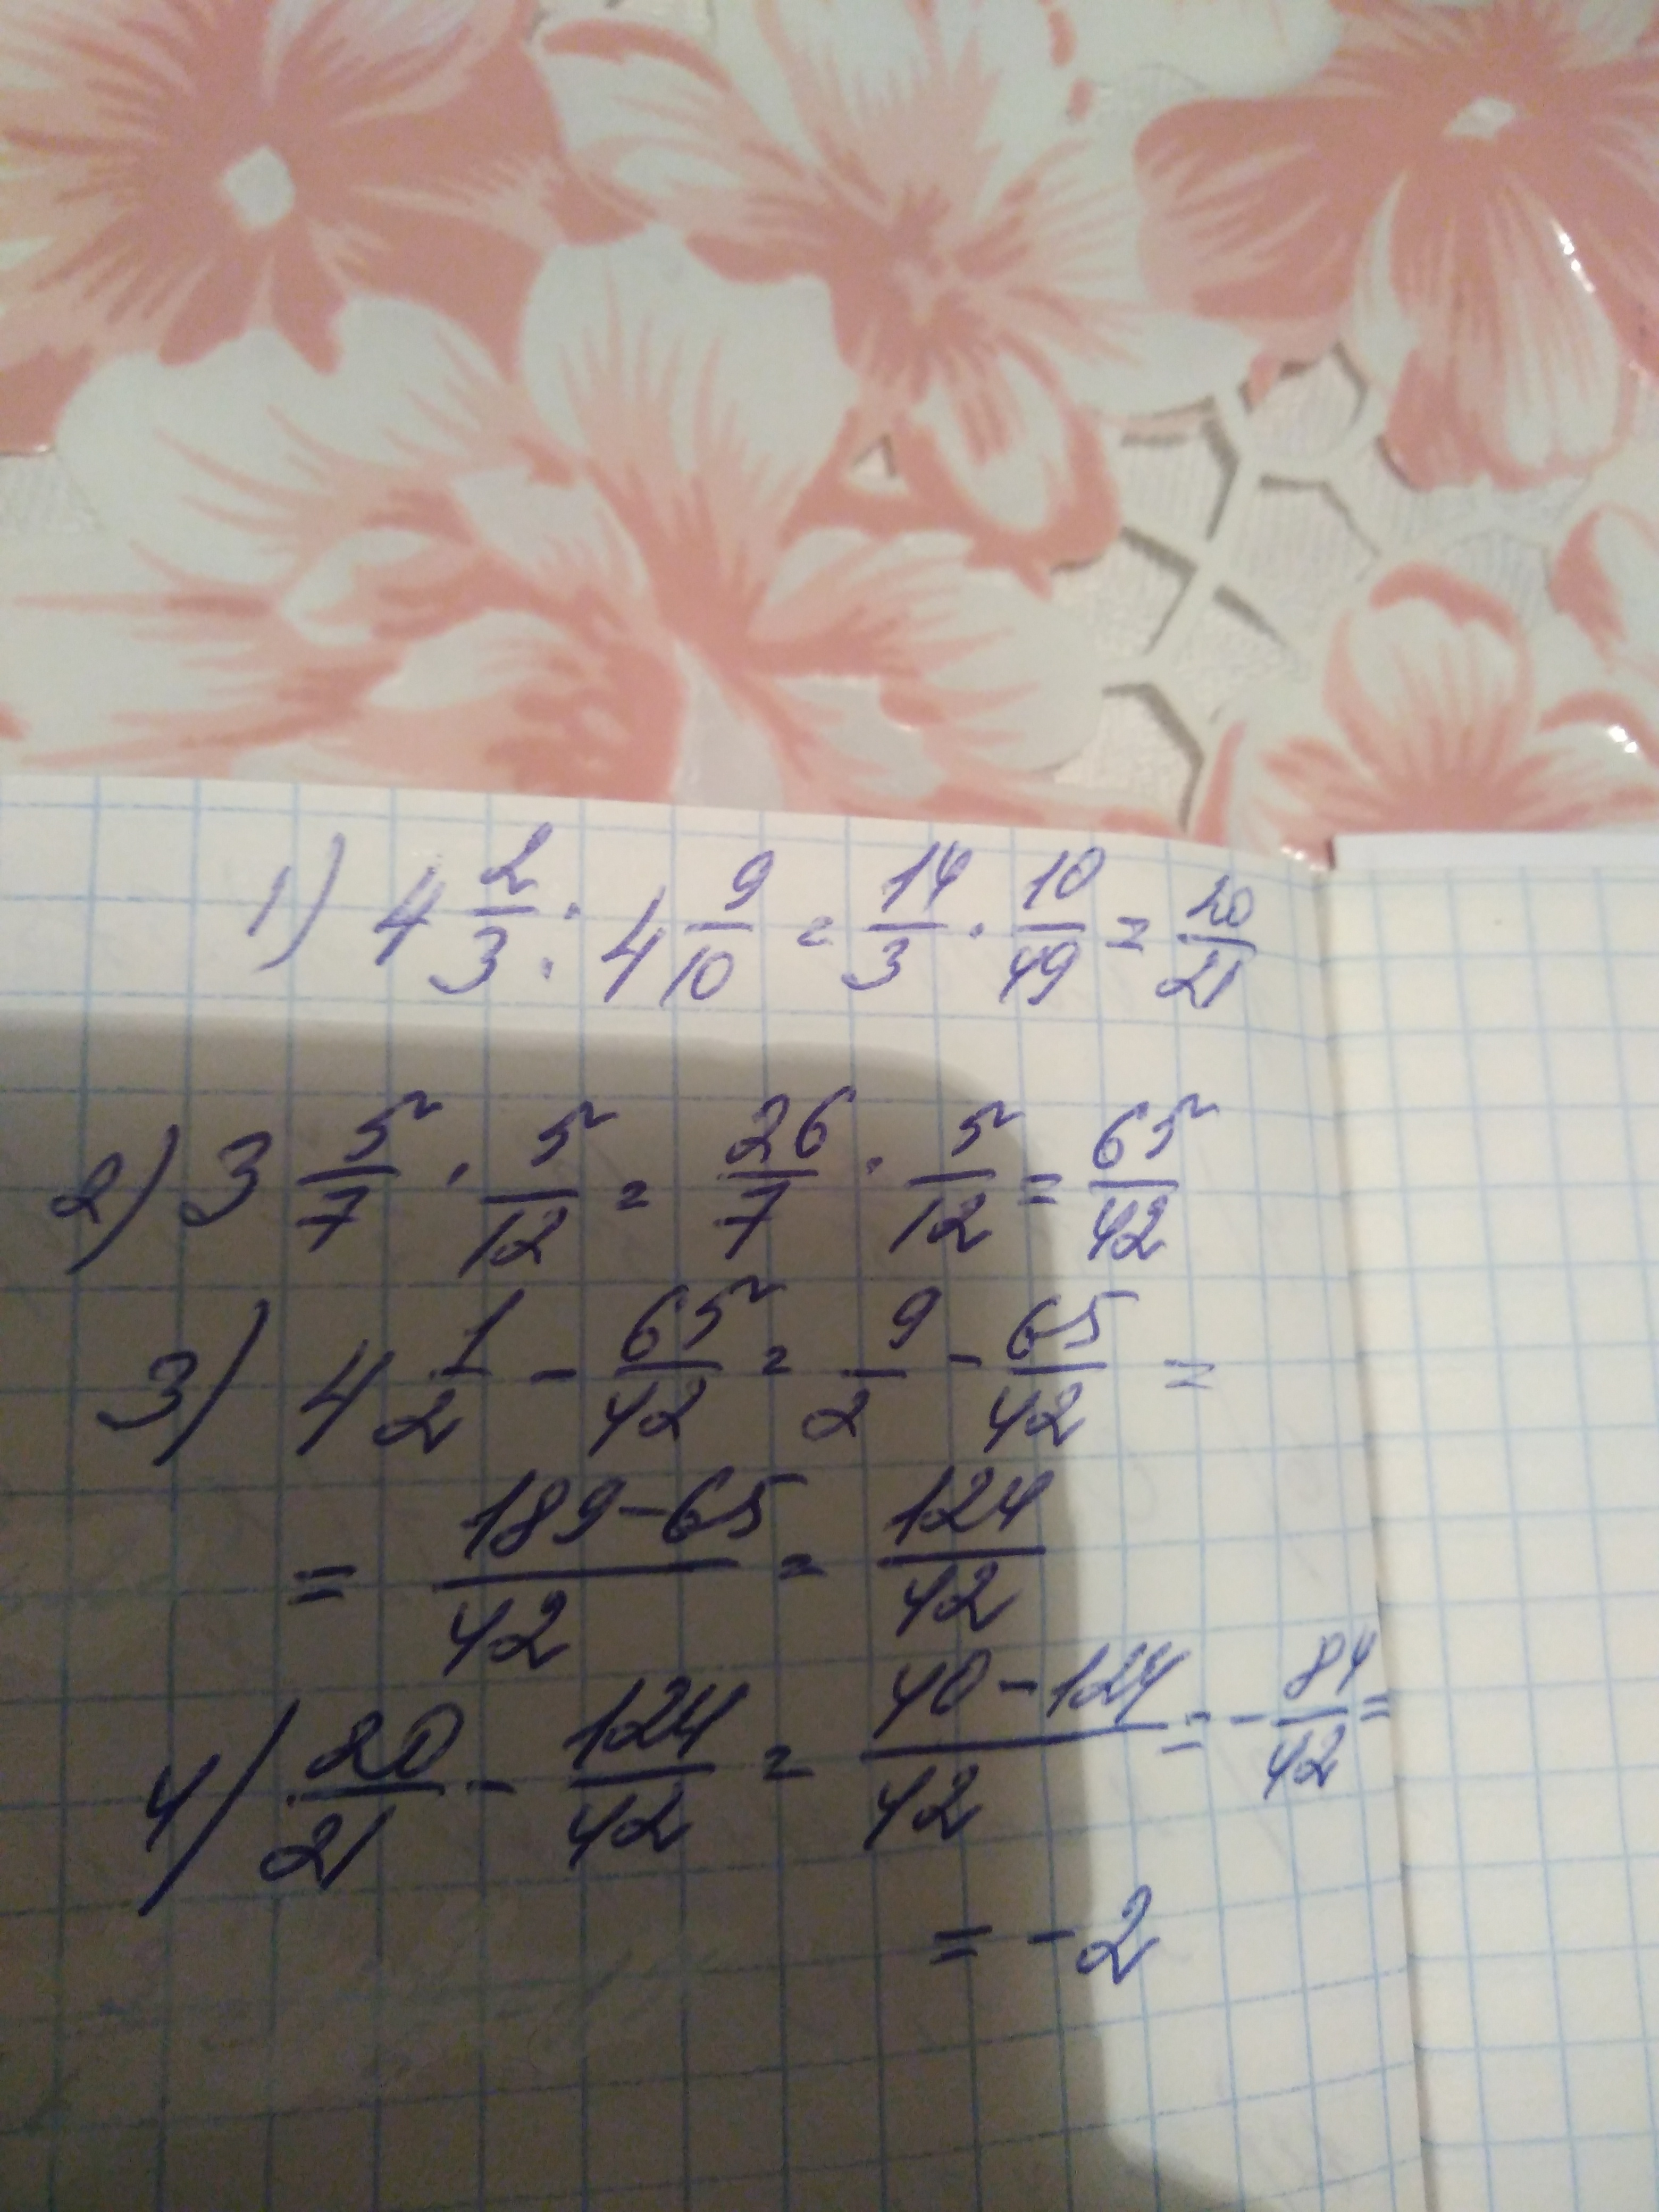 1) 4 2/3 : 4 9/10 = 14/3 · 10/49 = 20/21
2) 3 5/7 · 5/12 = 26/7 · 5/12 = 65/42
3) 4 1/2 - 65/42 = 9/2 - 65/42 =
= (189-65)/42 = 124/42
4) 20/21 - 124/42 = (40-124)/42 = - 84/42 =
= -2